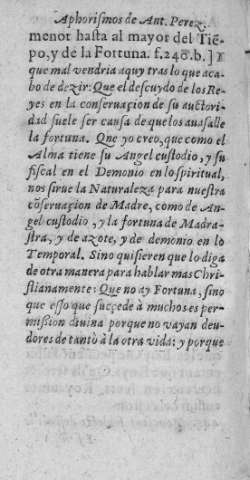 Aphorismos de Ant. Perez.
menor hasta al mayor del Tiẽ-
po, y de la Fortuna. f.240.b.] Y
que mal vendria aquy tras lo que aca-
bo de dezir: Que el descuydo de los Re-
yes en la conseruaçion de su auctori-
dad suele ser causa de que los auasalle
la fortuna. Que yo creo, que como el
Alma tiene su Angel custodio, y su
fiscal en el Demonio en lo spiritual,
nos sirue la Naturaleza para nuestra
cõseruaçion de Madre, como de An-
gel custodio, y la fortuna de Madra-
stra, y de azote, y de demonio en lo
Temporal. Sino quisieren que lo diga
de otra manera para hablar mas Chri-
stianamente: Que no ay Fortuna, sino
que esso que sucçede à muchos es per-
mission diuina porque no vayan deu-
dores de tanto à la otra vida: y porque